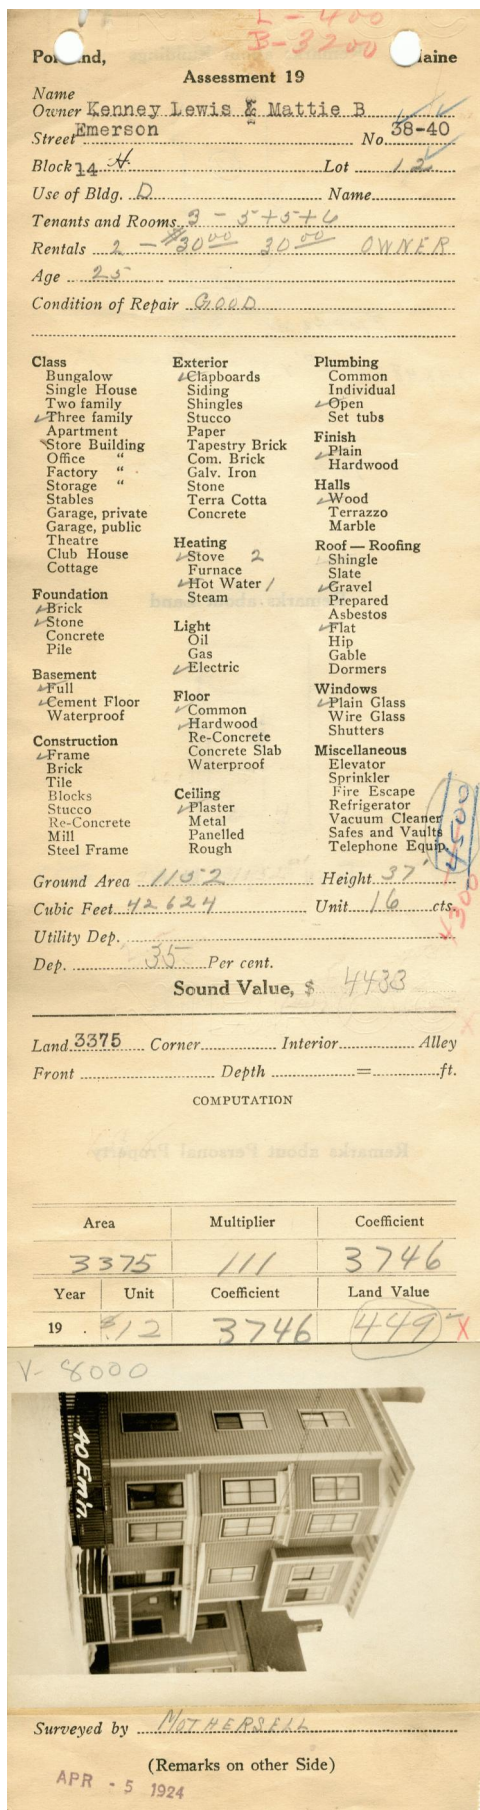 L - 400
B - 3200
Portland, Maine
Assessment 19
Name
Owner Kenney Lewis & Mattie B
Street Emerson No. 38-40
Block 14 H. Lot 12
Use of Bldg. D Name
Tenants and Rooms 3 - 5+5+6
Rentals 2 - $30.00 30.00 OWNER
Age 25
Condition of Repair GOOD
Class
Bungalow
Single House
Two family
✓Three family
Apartment
Store Building
Office "
Factory "
Storage "
Stables
Garage, private
Garage, public
Theatre
Club House
Cottage
Foundation
✓Brick
✓Stone
Concrete
Pile
Basement
✓Full
✓Cement Floor
Waterproof
Construction
✓Frame
Brick
Tile
Blocks
Stucco
Re-Concrete
Mill
Steel Frame
Exterior
✓Clapboards
Siding
Shingles
Stucco
Paper
Tapestry Brick
Com. Brick
Galv. Iron
Stone
Terra Cotta
Concrete
Heating
✓Stove 2
Furnace
✓Hot Water /
Steam
Light
Oil
Gas
✓Electric
Floor
✓Common
✓Hardwood
Re-Concrete
Concrete Slab
Waterproof
Ceiling
✓Plaster
Metal
Panelled
Rough
Plumbing
Common
Individual
✓Open
Set tubs
Finish
✓Plain
Hardwood
Halls
✓Wood
Terrazzo
Marble
Roof — Roofing
Shingle
Slate
✓Gravel
Prepared
Asbestos
✓Flat
Hip
Gable
Dormers
Windows
✓Plain Glass
Wire Glass
Shutters
Miscellaneous
Elevator
Sprinkler
Fire Escape
Refrigerator
Vacuum Cleaner
Safes and Vaults
Telephone Equip.
4500
Ground Area 1152 Height 37'
Cubic Feet 42624 Unit 16 cts.
Utility Dep.
Dep. 35 Per cent.
Sound Value, $ 4433
Land 3375 Corner Interior Alley
Front Depth = ft.
COMPUTATION
Remarks about Personal Property
Area Multiplier Coefficient
3375 111 3746
Year Unit Coefficient Land Value
19 . $.12 3746 449 X
V- 8000
40 Em'n.
Surveyed by MOTHERSELL
(Remarks on other Side)
APR - 5 1924